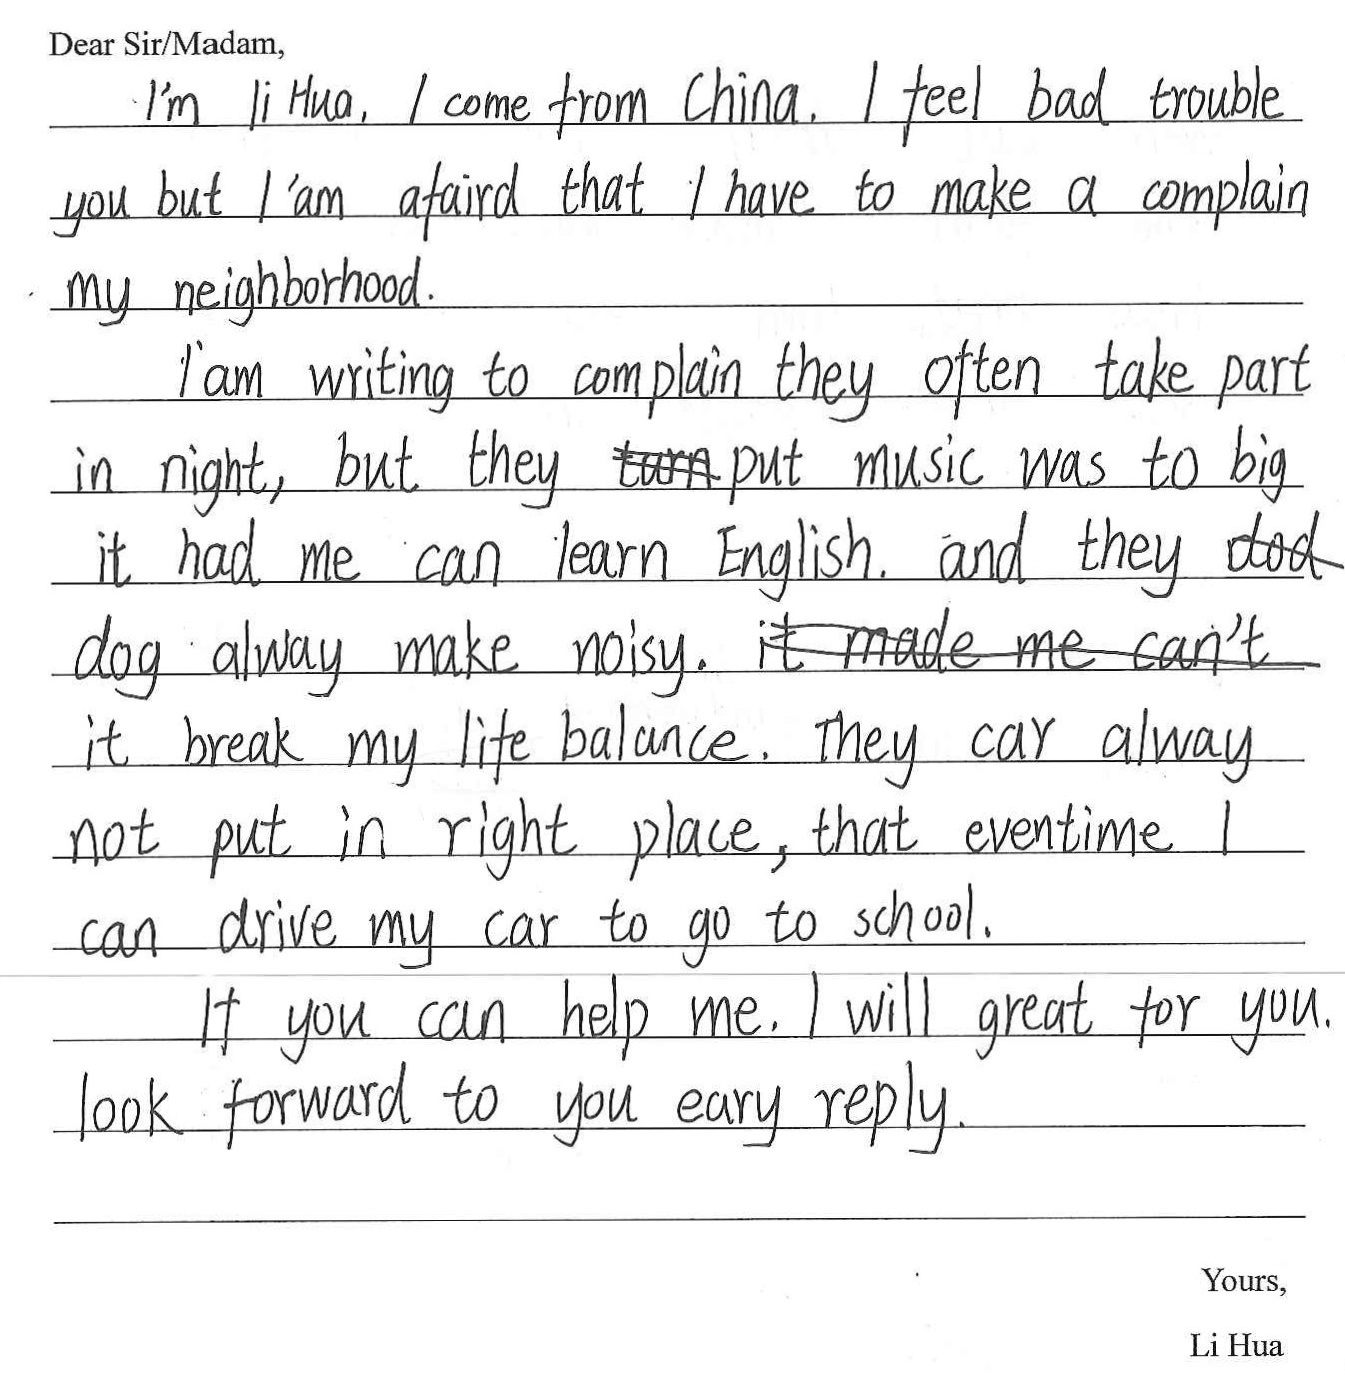 Dear Sir/Madam,
I'm li Hua, I come from China. I feel bad trouble
you but I 'am afaird that I have to make a complain
my neighborhood.
I'am writing to complain they often take part
in night, but they turn put music was to big
it had me can learn English. and they dod
dog alway make noisy. it made me can't
it break my life balance. They car alway
not put in right place, that eventime I
can drive my car to go to school.
If you can help me. I will great for you.
look forward to you eary reply.
Yours,
Li Hua